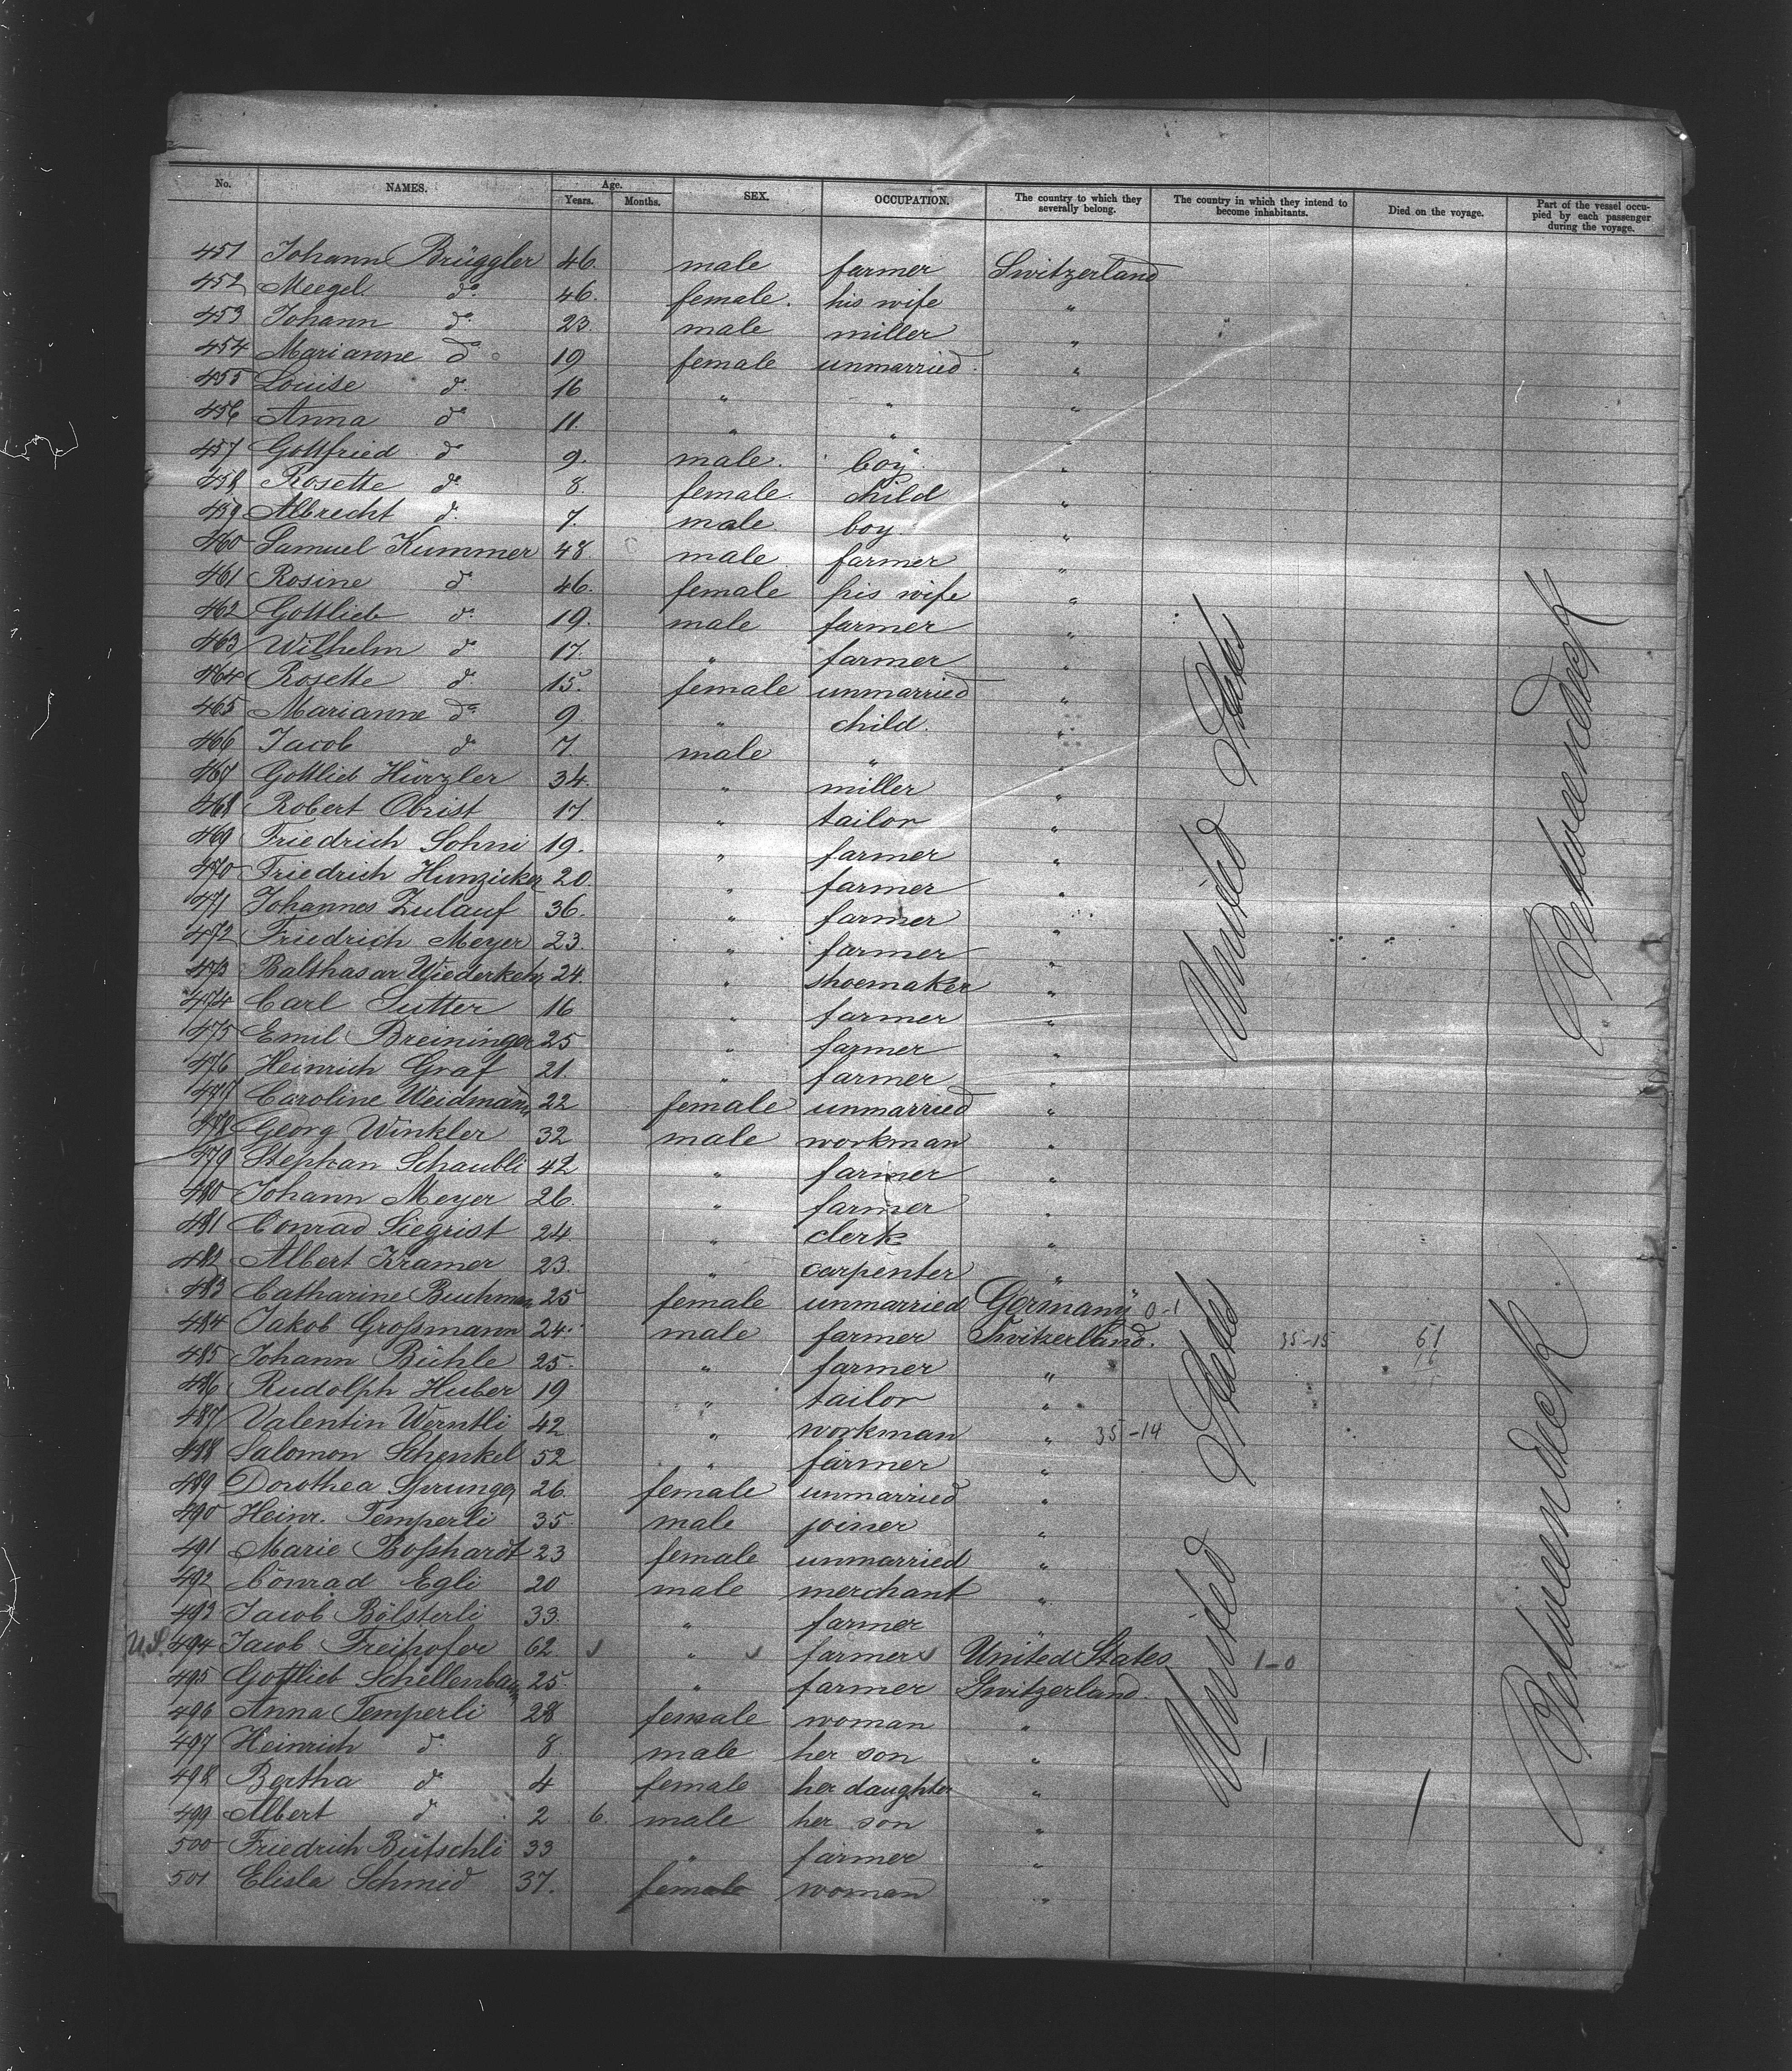 No. NAMES. Age. Years. Months. SEX. OCCUPATION. The country to which they severally belong. The country in which they intend to become inhabitants. Died on the voyage. Part of the vessel occupied by each passenger during the voyage.
451 Johann Brüggler 46. male farmer Switzerland
452 Meegel do 46. female. his wife "
453 Johann do 23. male miller "
454 Marianne do 19 female unmarried "
455 Louise do 16 " " "
456 Anna do 11. " " "
457 Gottfried do 9. male. boy "
458 Rosette do 8. female. child "
459 Albrecht do 7. male boy. "
460 Samuel Kummer 48. male farmer "
461 Rosine do 46. female his wife "
462 Gottlieb do 19. male farmer "
463 Wilhelm do 17. " farmer "
464 Rosette do 15. female unmarried "
465 Marianne do 9 " child. "
466 Jacob do 7. male " "
467 Gottlieb Hürzler 34. " miller "
468 Robert Obrist 17 " tailor "
469 Friedrich Sohni 19. " farmer "
470 Friedrich Hunzicker 20. " farmer "
471 Johannes Zulauf 36. " farmer "
472 Friedrich Meyer 23. " farmer "
473 Balthasar Wiederkehr 24. " shoemaker "
474 Carl Sutter 16 " farmer "
475 Emil Breininger 25 " farmer "
476 Heinrich Graf 21. " farmer "
477 Caroline Weidmann 22 female unmarried "
478 Georg Winkler 32 male workman "
479 Stephan Schaubli 42 " farmer "
480 Johann Meyer 26. " farmer "
481 Conrad Siegrist 24. " clerk "
482 Albert Kramer 23. " carpenter "
483 Catharine Buchmann 25 female unmarried Germany 0-1
484 Jakob Großmann 24. male farmer Switzerland. 35-15 51
16
485 Johann Bühle 25. " farmer "
486 Rudolph Huber 19 " tailor "
487 Valentin Werntli 42 " workman " 35-14
488 Salomon Schenkel 52 " farmer "
489 Dorothea Sprunger 26. female unmarried "
490 Heinr. Temperli 35. male joiner "
491 Marie Boßhardt 23 female unmarried "
492 Conrad Egli 20 male merchant "
493 Jacob Bölsterli 33. " farmer "
U.S. 494 Jacob Freihofer 62 " farmer United States 1-0
495 Gottlieb Schellenbaum 25. " farmer Switzerland.
496 Anna Temperli 28 female woman "
497 Heinrich do 8 male her son "
498 Bertha do 4 female her daughter "
499 Albert do 2 6. male her son "
500 Friedrich Bütschli 33 " farmer "
501 Elisla Schmid 37. female woman "
United States
United States
Betweendeck
Betweendeck